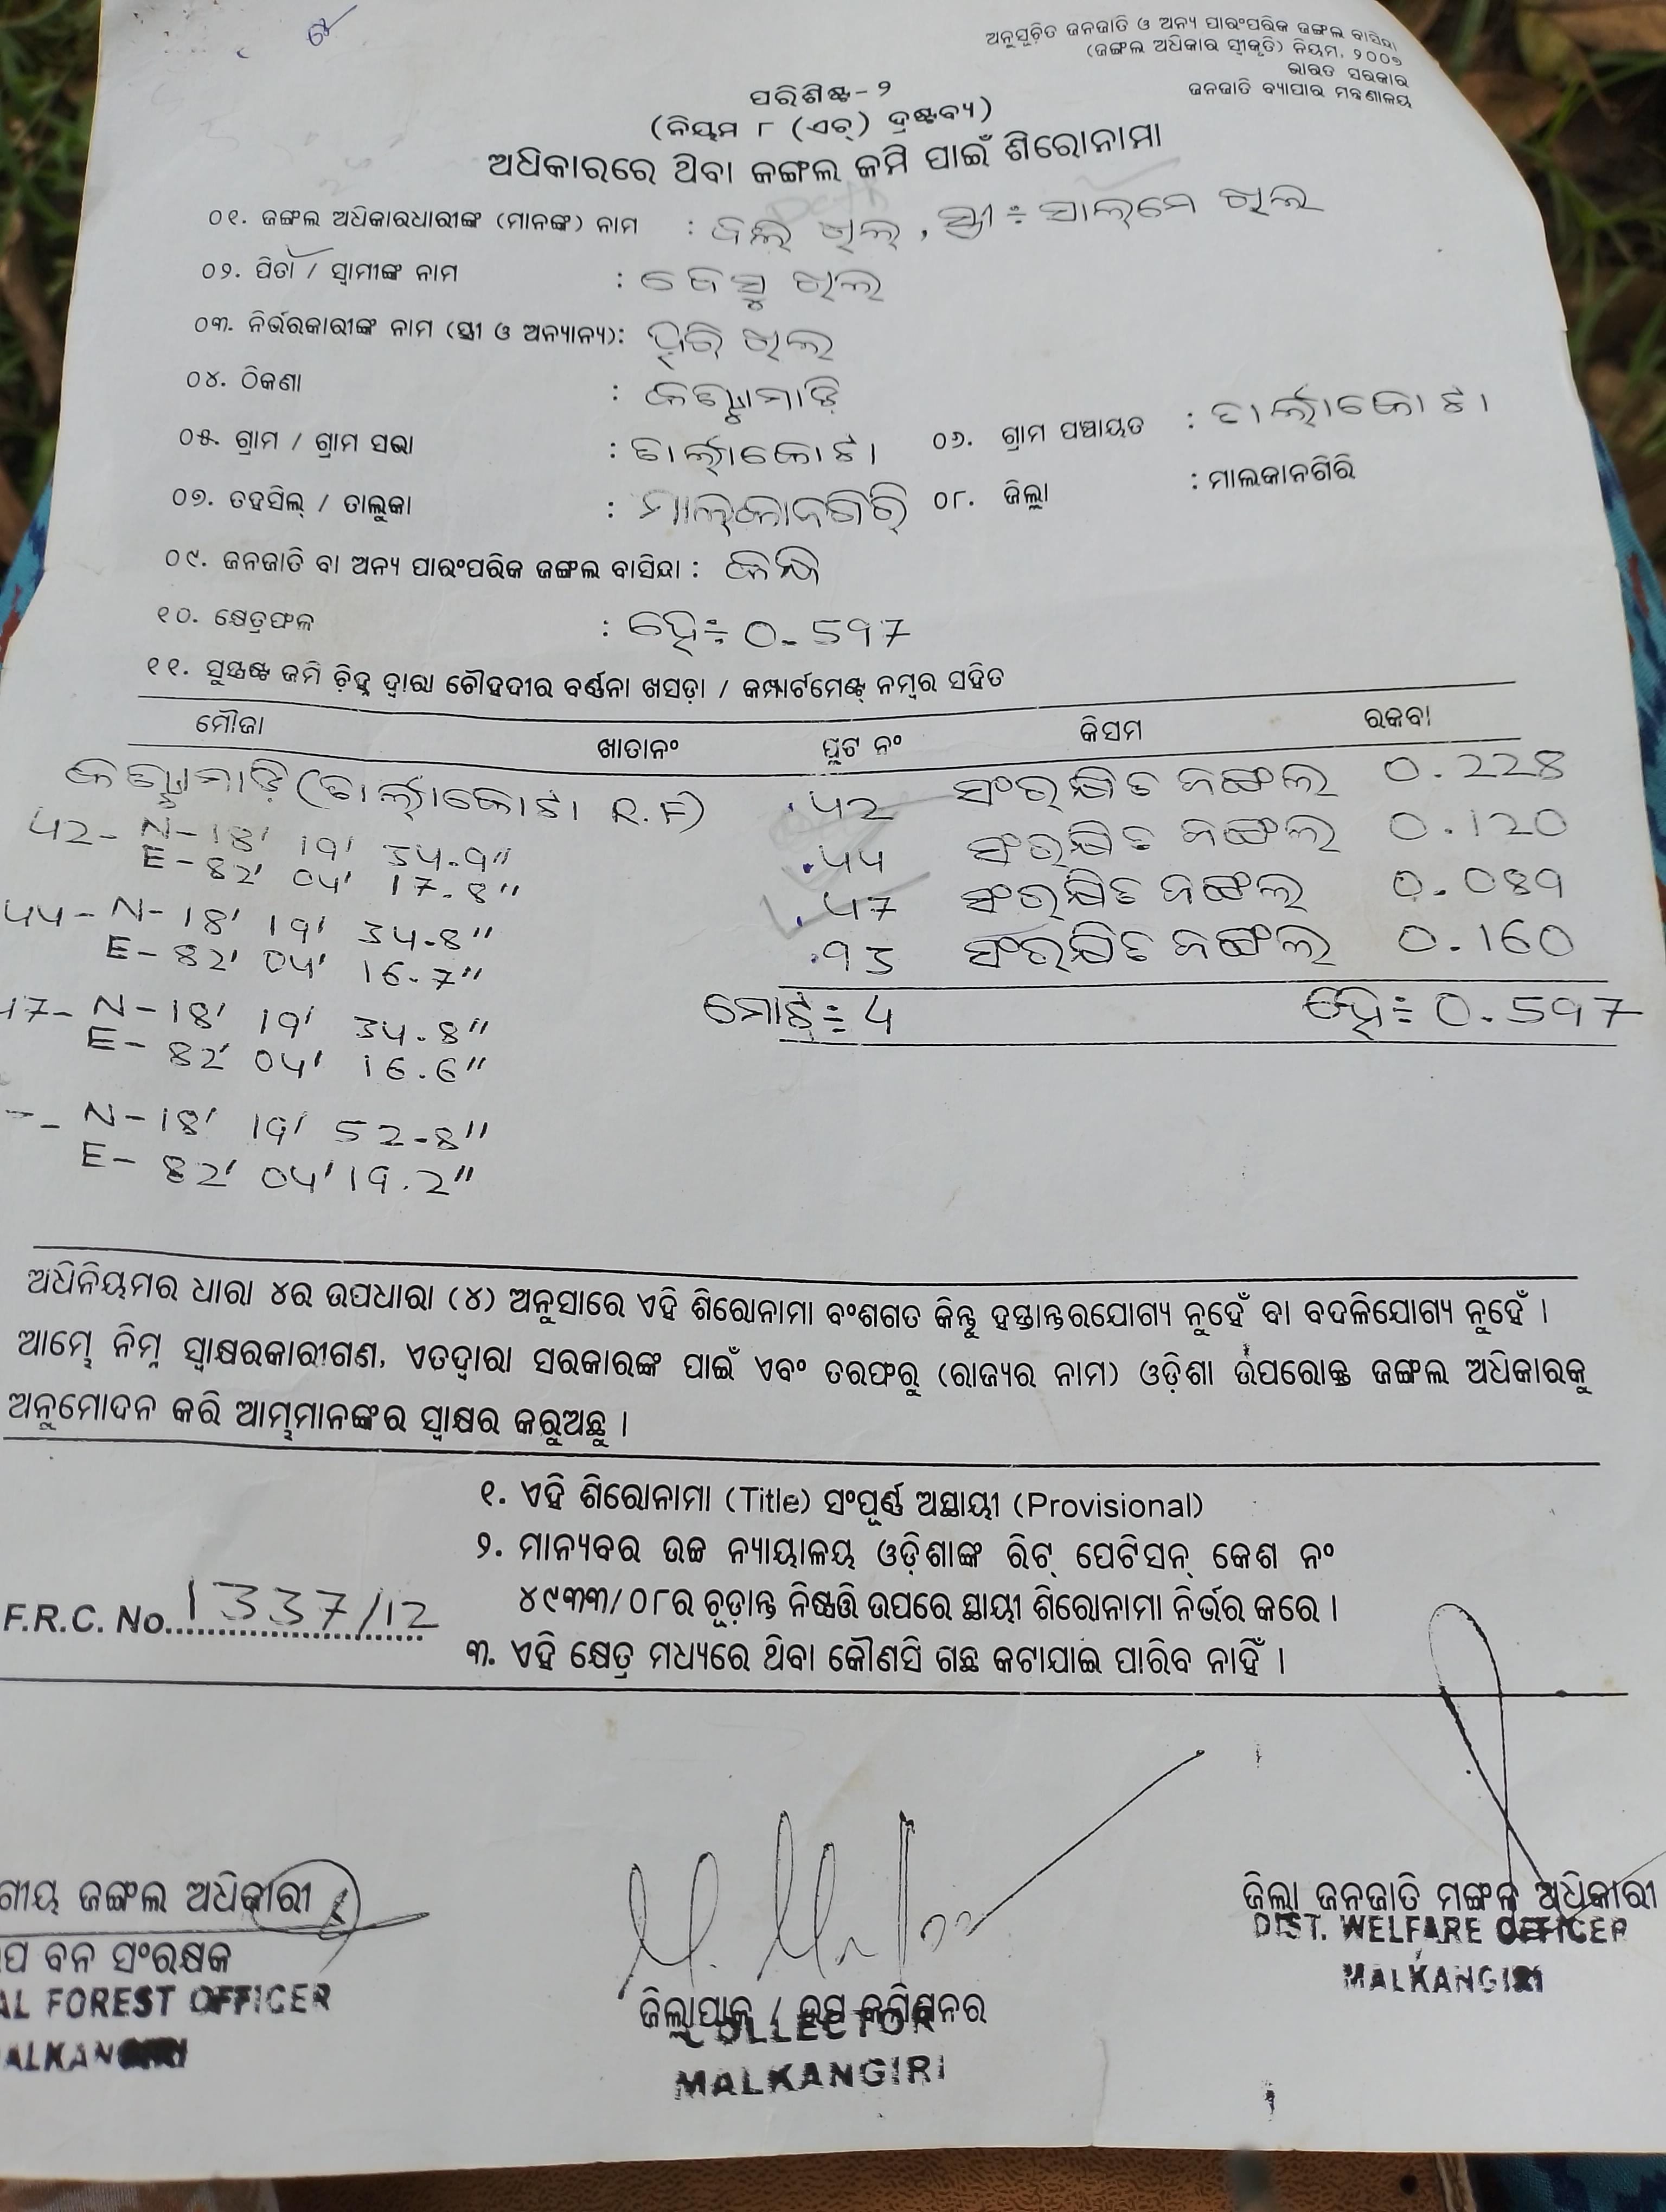 ଅନୁସୂଚିତ ଜନଜାତି ଓ ଅନ୍ୟ ପାରଂପରିକ ଜଙ୍ଗଲ ବାସିନ୍ଦା
(ଜଙ୍ଗଲ ଅଧିକାର ସ୍ୱୀକୃତି) ନିୟମ, ୨୦୦୭
ଭାରତ ସରକାର
ଜନଜାତି ବ୍ୟାପାର ମନ୍ତ୍ରଣାଳୟ
ପରିଶିଷ୍ଟ-୨
(ନିୟମ ୮ (ଏଚ୍) ଦ୍ରଷ୍ଟବ୍ୟ)
ଅଧିକାରରେ ଥିବା ଜଙ୍ଗଲ ଜମି ପାଇଁ ଶିରୋନାମା
୦୧. ଜଙ୍ଗଲ ଅଧିକାରଧାରୀଙ୍କ (ମାନଙ୍କ) ନାମ : ଖିଲ୍, ସ୍ତ୍ରୀ ÷ ଖିଲ
୦୨. ପିତା / ସ୍ୱାମୀଙ୍କ ନାମ : ଖିଲ
୦୩. ନିର୍ଭରକାରୀଙ୍କ ନାମ (ସ୍ତ୍ରୀ ଓ ଅନ୍ୟାନ୍ୟ): ଖିଲ
୦୪. ଠିକଣା :
୦୫. ଗ୍ରାମ / ଗ୍ରାମ ସଭା : ତାର୍ଲାକୋଟା ୦୬. ଗ୍ରାମ ପଞ୍ଚାୟତ : ତାର୍ଲାକୋଟା
୦୭. ତହସିଲ୍ / ତାଲୁକା : ମାଲ୍‌କାନଗିରି ୦୮. ଜିଲ୍ଲା : ମାଲକାନଗିରି
୦୯. ଜନଜାତି ବା ଅନ୍ୟ ପାରଂପରିକ ଜଙ୍ଗଲ ବାସିନ୍ଦା : କନ୍ଧ
୧୦. କ୍ଷେତ୍ରଫଳ : ହେ÷ 0.597
୧୧. ସୁସ୍ପଷ୍ଟ ଜମି ଚିହ୍ନ ଦ୍ୱାରା ଚୌହଦୀର ବର୍ଣ୍ଣନା ଖସଡ଼ା / କମ୍ପାର୍ଟମେଣ୍ଟ୍ ନମ୍ବର ସହିତ
ମୌଜା ଖାତାନଂ ପ୍ଲଟ ନଂ କିସମ ରକବା
(ତାର୍ଲାକୋଟା R.F) 42 ସଂରକ୍ଷିତ ଜଙ୍ଗଲ 0.228
42- N-18' 19' 34.9"
E-82' 04' 17.8" 44 ସଂରକ୍ଷିତ ଜଙ୍ଗଲ 0.120
44- N-18' 19' 34.8" 47 ସଂରକ୍ଷିତ ଜଙ୍ଗଲ 0.089
E-82' 04' 16.7" 93 ସଂରକ୍ଷିତ ଜଙ୍ଗଲ 0.160
47- N-18' 19' 34.8" ମୋଟ÷ 4 ହେ÷ 0.597
E- 82' 04' 16.6"
N-18' 19' 52.8"
E- 82' 04' 19.2"
ଅଧିନିୟମର ଧାରା ୪ର ଉପଧାରା (୪) ଅନୁସାରେ ଏହି ଶିରୋନାମା ବଂଶଗତ କିନ୍ତୁ ହସ୍ତାନ୍ତରଯୋଗ୍ୟ ନୁହେଁ ବା ବଦଳିଯୋଗ୍ୟ ନୁହେଁ ।
ଆମ୍ଭେ ନିମ୍ନ ସ୍ୱାକ୍ଷରକାରୀଗଣ, ଏତଦ୍ୱାରା ସରକାରଙ୍କ ପାଇଁ ଏବଂ ତରଫରୁ (ରାଜ୍ୟର ନାମ) ଓଡ଼ିଶା ଉପରୋକ୍ତ ଜଙ୍ଗଲ ଅଧିକାରକୁ
ଅନୁମୋଦନ କରି ଆମ୍ଭମାନଙ୍କର ସ୍ୱାକ୍ଷର କରୁଅଛୁ ।
୧. ଏହି ଶିରୋନାମା (Title) ସଂପୂର୍ଣ୍ଣ ଅସ୍ଥାୟୀ (Provisional)
୨. ମାନ୍ୟବର ଉଚ୍ଚ ନ୍ୟାୟାଳୟ ଓଡ଼ିଶାଙ୍କ ରିଟ୍ ପେଟିସନ୍ କେଶ ନଂ
୪୯୩୩/୦୮ର ଚୂଡ଼ାନ୍ତ ନିଷ୍ପତ୍ତି ଉପରେ ସ୍ଥାୟୀ ଶିରୋନାମା ନିର୍ଭର କରେ ।
F.R.C. No. 1337/12
୩. ଏହି କ୍ଷେତ୍ର ମଧ୍ୟରେ ଥିବା କୌଣସି ଗଛ କଟାଯାଇ ପାରିବ ନାହିଁ ।
ଗୀୟ ଜଙ୍ଗଲ ଅଧିକାରୀ
ପ ବନ ସଂରକ୍ଷକ
AL FOREST OFFICER
ALKANGIRI
ଜିଲ୍ଲାପାଳ / ଉପ କମିଶନର
COLLECTOR
MALKANGIRI
ଜିଲ୍ଲା ଜନଜାତି ମଙ୍ଗଳ ଅଧିକାରୀ
DIST. WELFARE OFFICER
MALKANGIRI